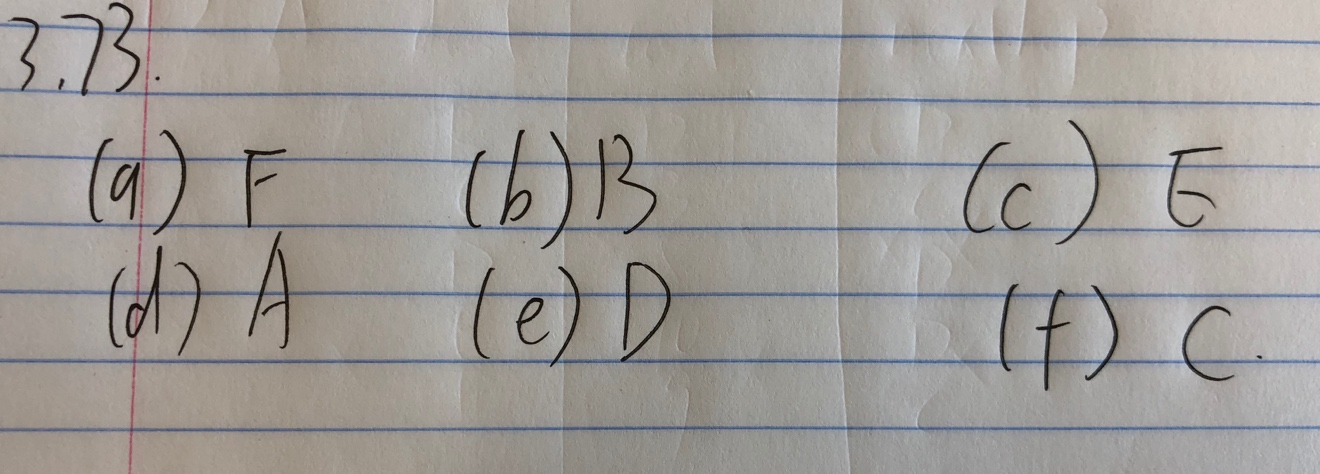 3.73.
(a) F (b) B (c) E
(d) A (e) D (f) C.